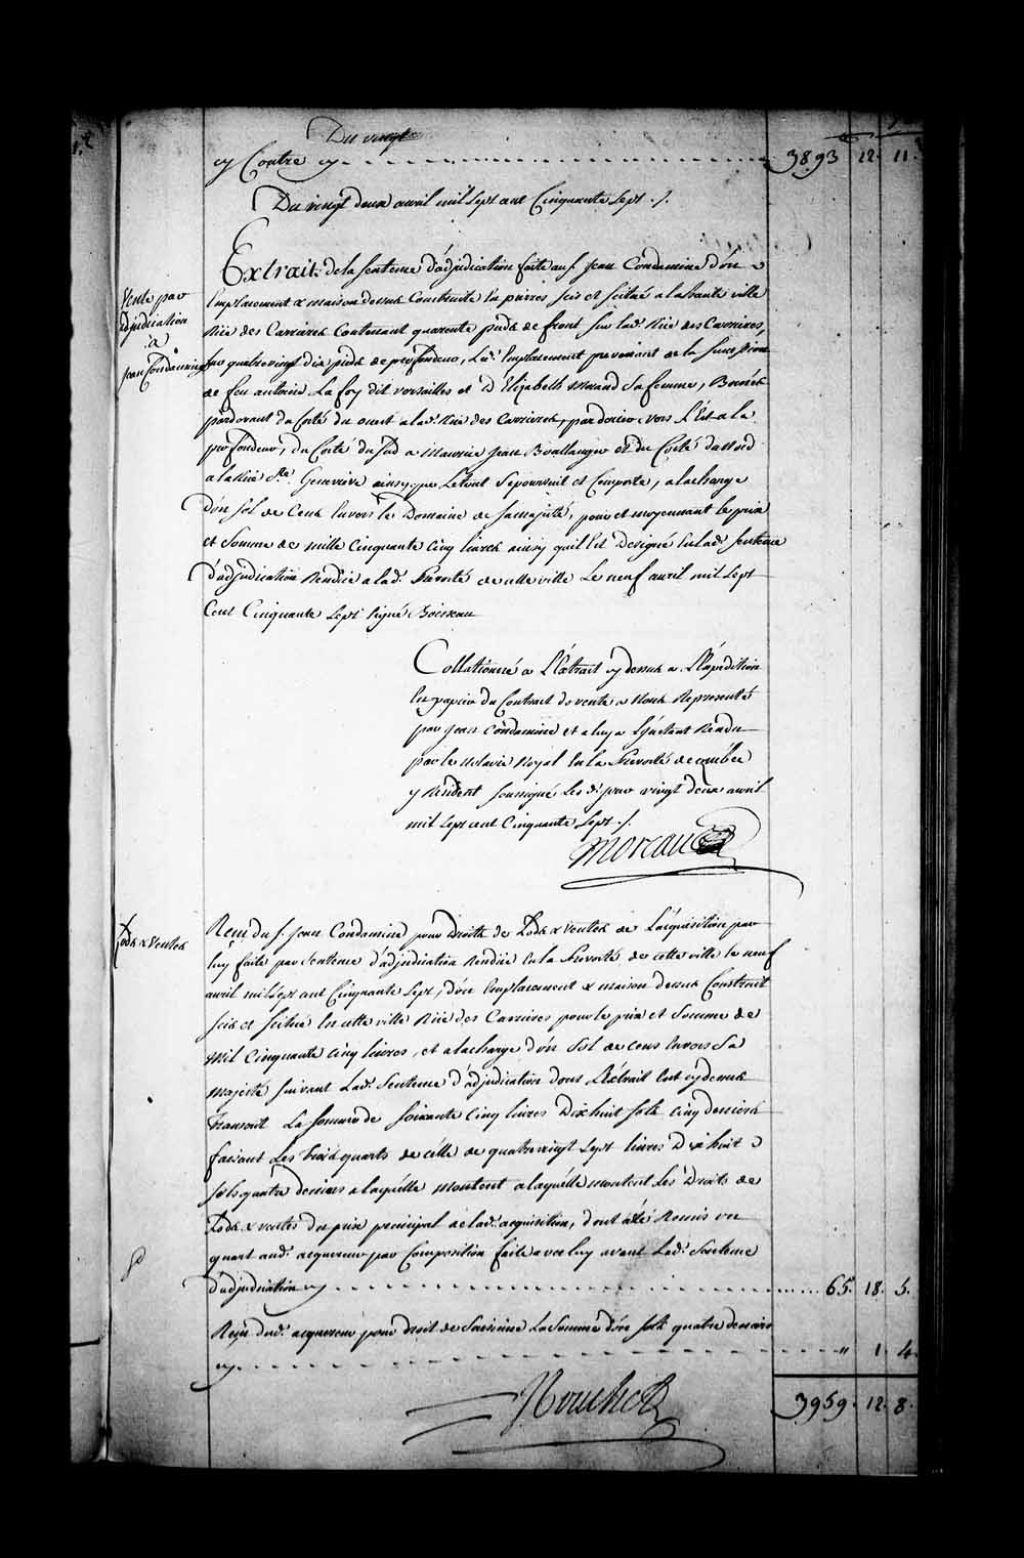 Du vingt
cy Contre cy 3893 12. 11.
Du vingt deux avril mil sept cent Cinquante Sept ./.
Vente par
adjudication
à
Jean Condamine
Extrait de la sentence d'adjudication faite au s. Jean Condamine d'un
Emplacement & maison dessus Construite En pierres scis et scitué a la haute ville
Rüe des Carrieres Contenant quarente pieds de front sur lad. Rüe des Carrieres,
sur quatrevingt dix pieds de profondeur, Led. Emplacement provenant de la Succession
de feu antoine La foy dit versailles et D Elizabeth Morand Sa femme, Bornés
pardevant du Costé du ouest a lad. Rüe des Carrieres, par derriere vers L'Est a la
profondeur, du Costé du Sud a Maurice Jean Boullanger et du Costé du Nord
a la Rüe Ste. Geneviéve ainsy que Le tout Se poursuit et Comporte, a la charge
d'un Sol de Cens Envers le Domaine de sa majesté, pour et moyennant le prix
et Somme de mille Cinquante Cinq livres ainsy qu'il Est Designé En lad. Sentence
d'adjudication Rendüe a lad. Prevosté de cette ville Le neuf avril mil Sept
Cent Cinquante Sept signé Boisseau
Collationné a L'Extrait cy dessus a L'Expedition
En papier du Contract de vente a Nous Representé
par Jean Condamine et a luy a L'instant Rendu
par le Notaire Royal En la Prevosté de quebec
y Resident soussigné Les d. jour vingt deux avril
mil sept cent Cinquante Sept ./.
Moreau
Lods & Ventes
Reçu du s. Jean Condamine pour Droits de Lods & Ventes de L'acquisition par
luy faite par Sentence d'adjudication Rendüe En la Prevosté de cette ville le neuf
avril mil sept cent Cinquante Sept, d'un Emplacement & maison dessus Construit
scis et scitué En cette ville Rüe des Carrieres pour le prix et Somme de
Mil Cinquante Cinq livres, et a la charge d'un Sol de cens Envers Sa
majesté suivant Lad. Sentence d'adjudication dont L'Extrait Est cy dessus
Transcrit La Somme de Soixante Cinq livres Dix huit Sols Cinq deniers
faisant Les trois quarts de célle de quatrevingt Sept livres Dix huit
sols quatre deniers a laquélle montent a laquélle montent Les Droits de
Lods & ventes du prix principal de lad. acquisition, dont a été Remis un
quart aud. acquereur par Composition faite avec luy avant Lad. Sentence
d'adjudication cy 65. 18. 5.
Reçu dud. acquereur pour droit de Saisinne La Somme d'un Sols quatre deniers
cy " 1. 4.
3959. 12. 8.
Nouchet